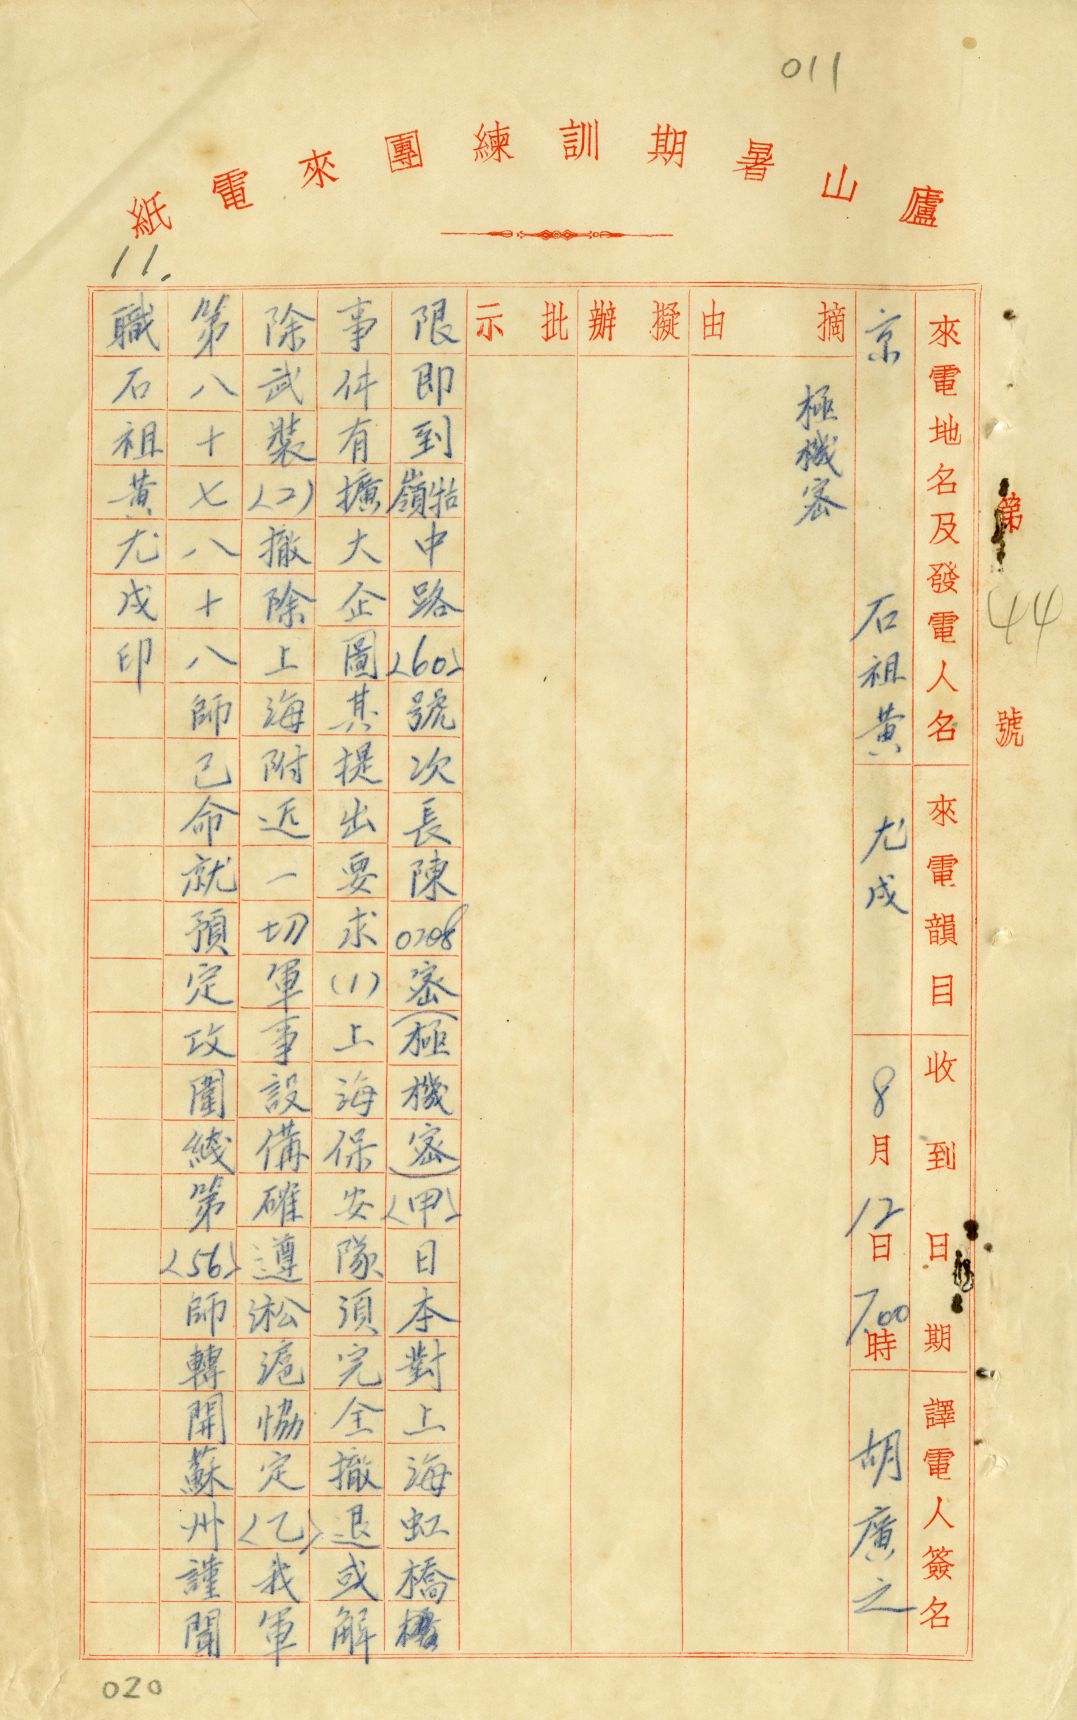 011
廬山暑期訓練團來電紙
11.
第44號
來電地名及發電人名 來電韻目 收到日期 譯電人簽名
京 石祖黃 尤戌 8月12日700時 胡廣之
摘由
極機密
擬辦
批示
限即到牯嶺中路〈60〉號次長陳0708密(極機密)〈甲〉日本對上海虹橋
事件有擴大企圖其提出要求(1)上海保安隊須完全撤退或解
除武裝〈2〉撤除上海附近一切軍事設備確遵淞滬協定〈乙〉我軍
第八十七八十八師已命就預定攻圍綫第〈56〉師轉開蘇州謹聞
職石祖黃尤戌印
020